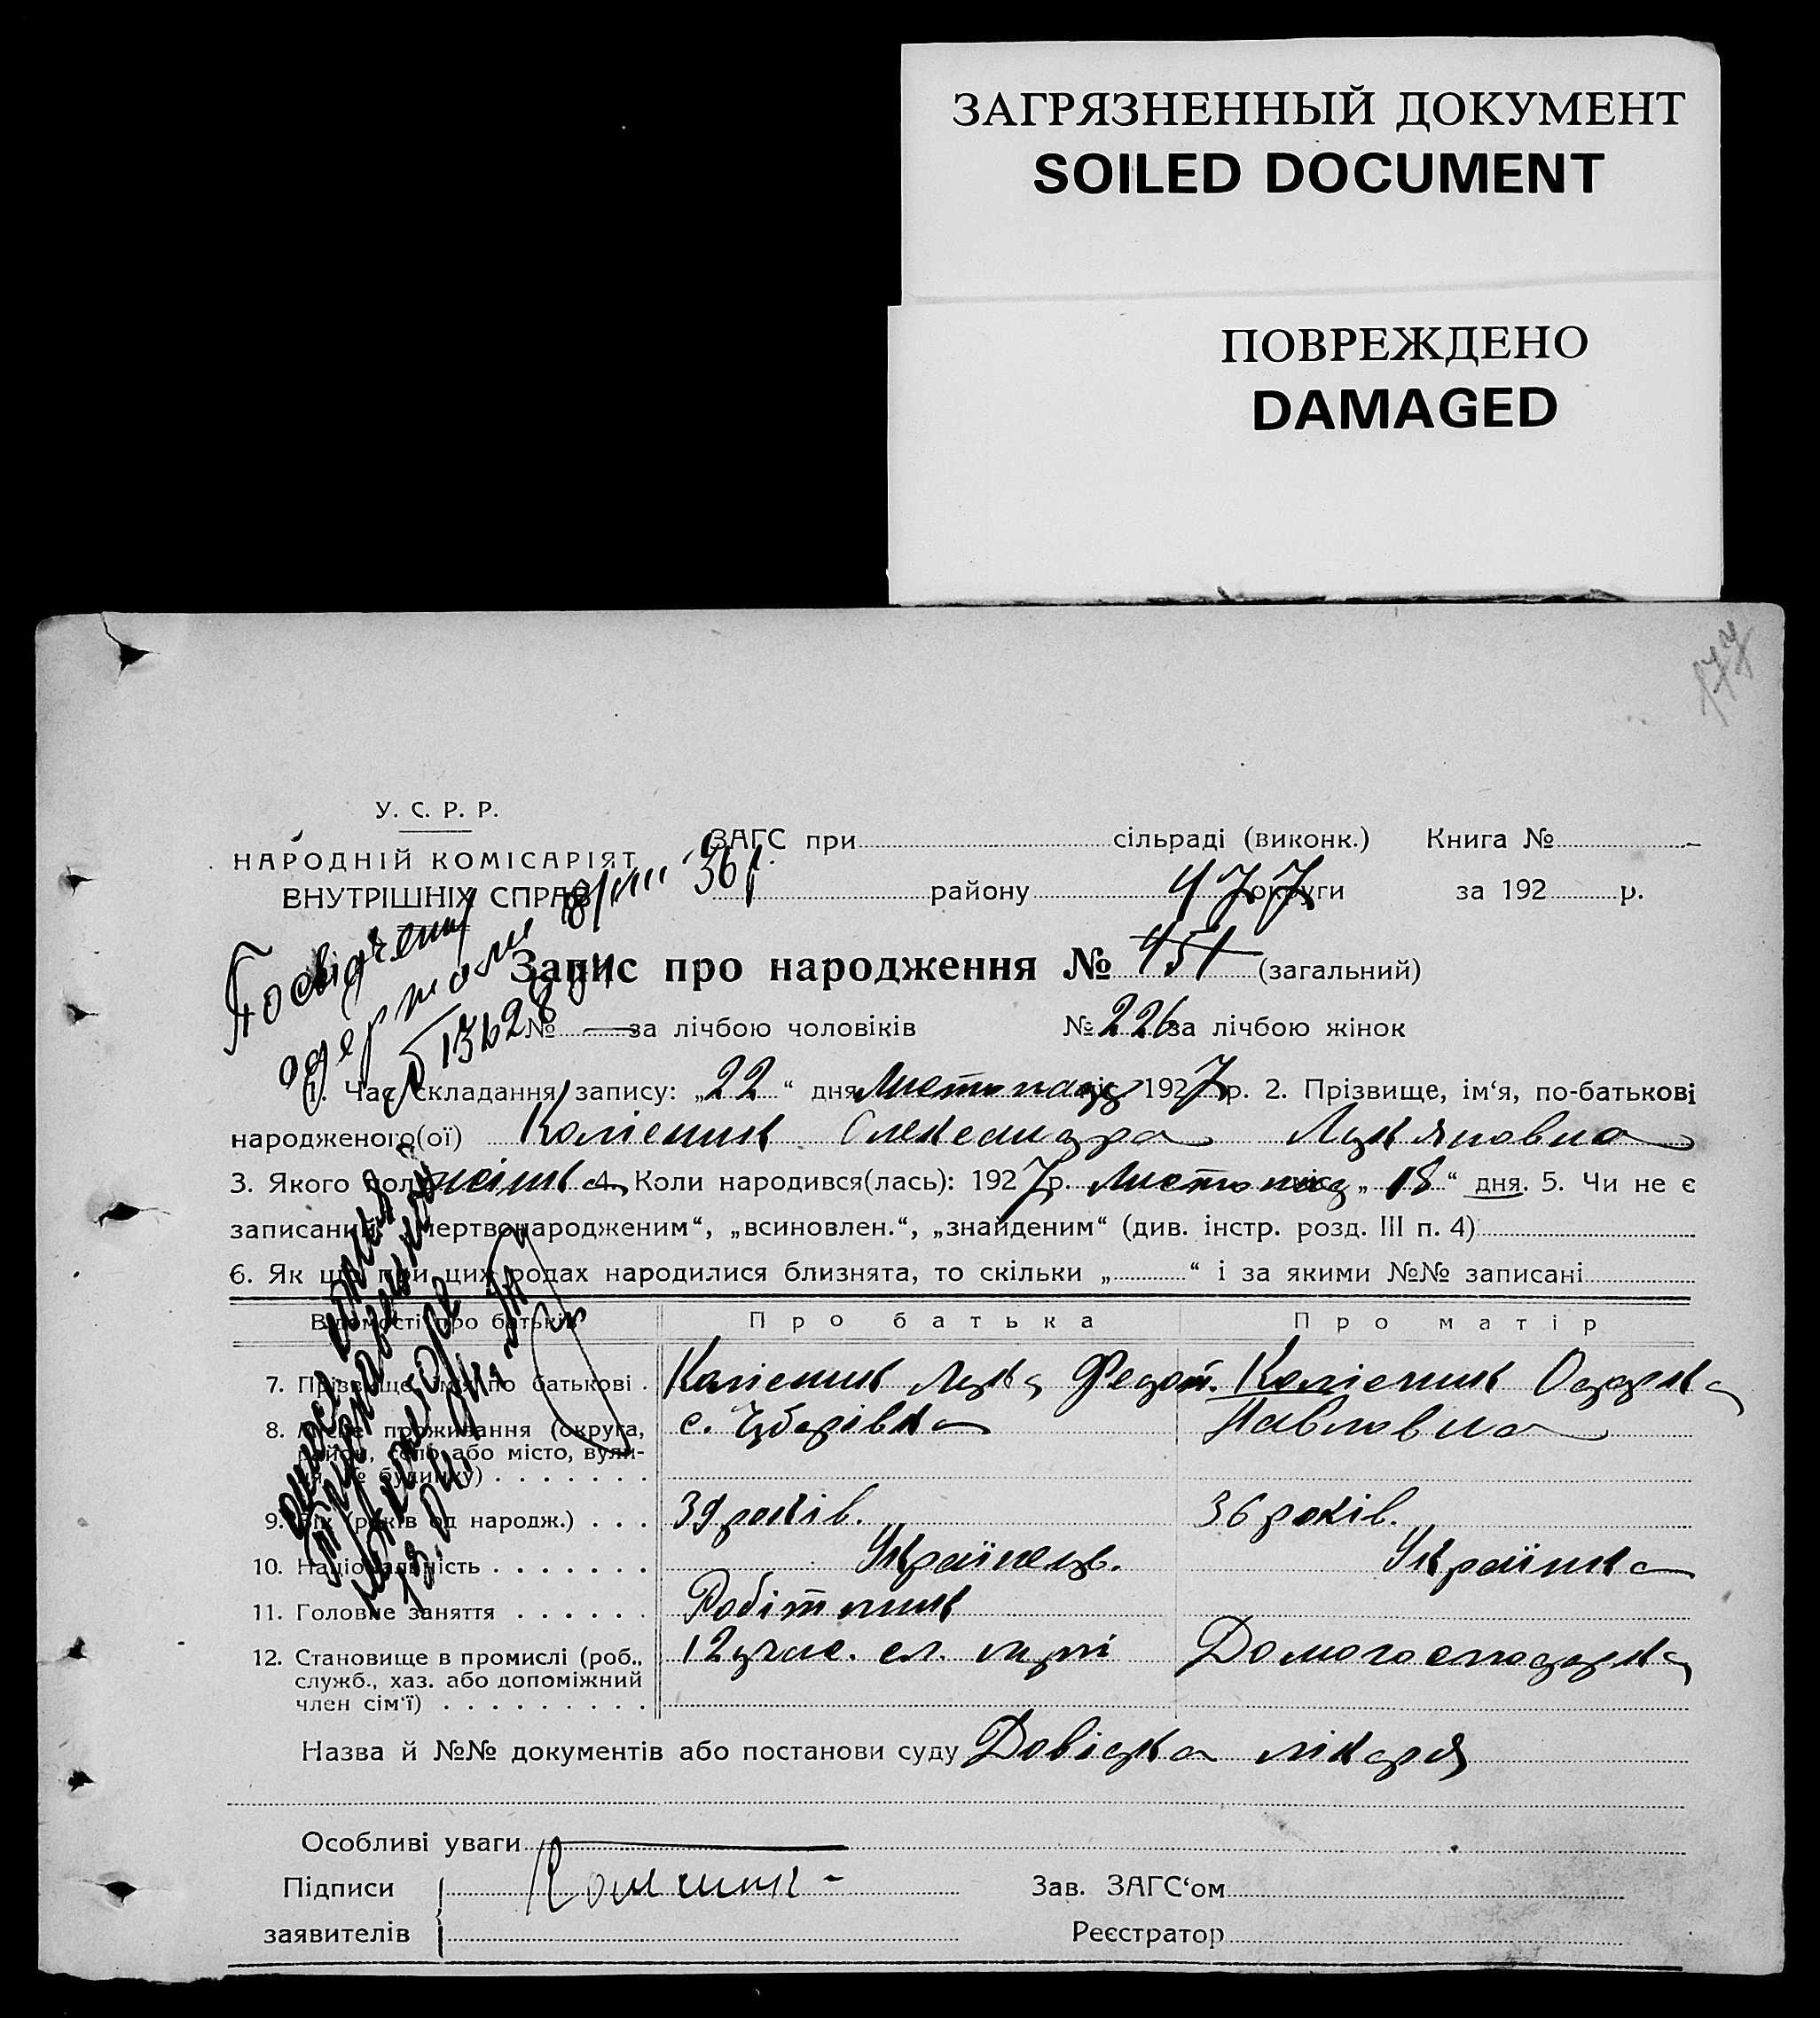 ЗАГРЯЗНЕННЫЙ ДОКУМЕНТ
SOILED DOCUMENT
ПОВРЕЖДЕНО
DAMAGED
177
У. С. Р. Р.
НАРОДНІЙ КОМІСАРІЯТ
ВНУТРІШНІХ СПРАВ
ЗАГС при сільраді (виконк.) Книга №
району округи за 192 р.
477
Запис про народження № 451 (загальний)
№ — за лічбою чоловіків № 226 за лічбою жінок
8/VIII 36 р.
1. Час складання запису: „22“ дня Листопад міс. 1927 р. 2. Прізвище, ім‘я, по-батькові
народженого(ої) Колісник Олександра Лукяновна
3. Якого полу жінка 4. Коли народився(лась): 1927 р. Листопад міс. „18“ дня. 5. Чи не є
записаний „мертвонародженим“, „всиновлен.“, „знайденим“ (див. інстр. розд. III п. 4)
6. Як що при цих родах народилися близнята, то скільки „ “ і за якими №№ записані
Відомості про батьків Про батька Про матір
7. Прізвище, імя по батькові . Колісник Лука Федот. Колісник Одарка
Павловна
8. Місце проживання (округа,
район, село або місто, вули-
ця, № будинку) . . . . . . .
9. Вік (років од народж.) . . . 39 років. 36 років.
10. Національність . . . . . . . Українець. Українка
11. Головне заняття . . . . . . Робітник
12. Становище в промислі (роб.,
служб., хаз. або допоміжний
член сім‘ї) . . . . . . . . .
Домогосподарка
Назва й №№ документів або постанови суду Довідка лікаря
Особливі уваги
Підписи Колісник Зав. ЗАГС‘ом
заявителів Реєстратор